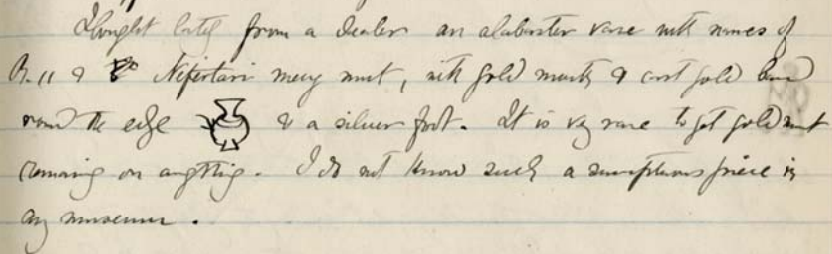 I bought lately from a dealer an alabaster vase with names of
R. II & Nefertari mery mut, with gold mouth & cast gold band
round the edge & a silver foot. It is vy rare to get gold mount
remaining on anything. I do not know such a sumptuous piece in
any museum.